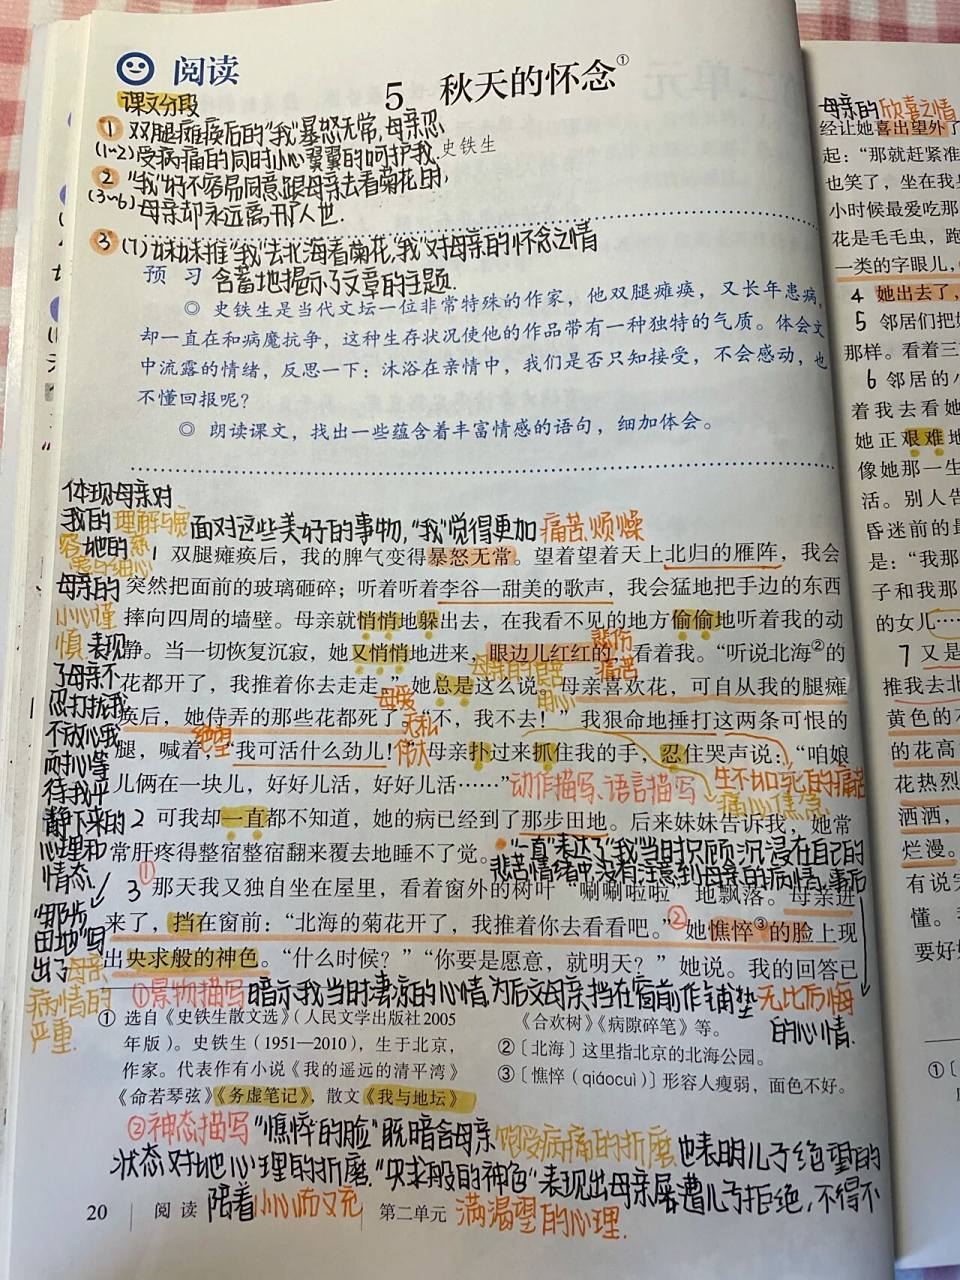 阅读
5 秋天的怀念①
课文分段
① 双腿瘫痪后的"我"暴怒无常,母亲忍
(1~2)受病痛的同时小心翼翼的呵护我.
史铁生
② "我"好不容易同意跟母亲去看菊花时,
(3~6)母亲却永远离开了人世.
③ (7)妹妹推"我"去北海看菊花,"我"对母亲的怀念之情
含蓄地揭示了文章的主题.
预 习
◎ 史铁生是当代文坛一位非常特殊的作家,他双腿瘫痪,又长年患病,
却一直在和病魔抗争,这种生存状况使他的作品带有一种独特的气质。体会文
中流露的情绪,反思一下:沐浴在亲情中,我们是否只知接受,不会感动,也
不懂回报呢?
◎ 朗读课文,找出一些蕴含着丰富情感的语句,细加体会。
体现母亲对
我的理解与宽
容,她的
母亲的
小心谨
慎 表现
了母亲不
忍打扰我
不放心我
耐心等
待我平
静下来的
心理和
情态.
"那步
田地"写
出了母亲
病情的
严重.
面对这些美好的事物,"我"觉得更加痛苦.烦燥
1 双腿瘫痪后,我的脾气变得暴怒无常。望着望着天上北归的雁阵,我会
突然把面前的玻璃砸碎;听着听着李谷一甜美的歌声,我会猛地把手边的东西
摔向四周的墙壁。母亲就悄悄地躲出去,在我看不见的地方偷偷地听着我的动
静。当一切恢复沉寂,她又悄悄地进来,眼边儿红红的,看着我。“听说北海②的
悲伤
痛苦
花都开了,我推着你去走走。”她总是这么说。母亲喜欢花,可自从我的腿瘫
母爱
无私
伟大
痪后,她侍弄的那些花都死了。“不,我不去!”我狠命地捶打这两条可恨的
绝望
腿,喊着,“我可活什么劲儿!”母亲扑过来抓住我的手,忍住哭声说:“咱娘
儿俩在一块儿,好好儿活,好好儿活……”
动作描写、语言描写
生不如死的痛苦
痛心焦急
2 可我却一直都不知道,她的病已经到了那步田地。后来妹妹告诉我,她常
常肝疼得整宿整宿翻来覆去地睡不了觉。
"一直"表达了"我"当时只顾沉浸在自己的
悲苦情绪中,没有注意到母亲的病情,事后
3 那天我又独自坐在屋里,看着窗外的树叶“唰唰啦啦”地飘落。母亲进
来了,挡在窗前:“北海的菊花开了,我推着你去看看吧。”②她憔悴③的脸上现
出央求般的神色。“什么时候?”“你要是愿意,就明天?”她说。我的回答已
①景物描写 暗示我当时凄凉的心情,为后文母亲挡在窗前作铺垫
无比后悔
的心情.
① 选自《史铁生散文选》(人民文学出版社2005
年版)。史铁生(1951—2010),生于北京,
作家。代表作有小说《我的遥远的清平湾》
《命若琴弦》《务虚笔记》,散文《我与地坛》
《合欢树》《病隙碎笔》等。
②〔北海〕这里指北京的北海公园。
③〔憔悴(qiáocuì)〕形容人瘦弱,面色不好。
②神态描写 "憔悴的脸"既暗含母亲饱受病痛的折磨,也表明儿子绝望的
状态对她心理的折磨."央求般的神色"表现出母亲屡遭儿子拒绝,不得不
陪着小心而又充
满渴望的心理.
20 阅读 第二单元
母亲的欣喜之情
经让她喜出望外了
起:“那就赶紧准
也笑了,坐在我身
小时候最爱吃那
花是毛毛虫,跑
一类的字眼儿,
4 她出去了,
5 邻居们把她
那样。看着三
6 邻居的小
着我去看她
她正艰难地
像她那一生
活。别人告
昏迷前的最
是:“我那
子和我那
的女儿……
7 又是
推我去北
黄色的
的花高
花热烈
洒洒,
烂漫。
有说完
懂。
要好好